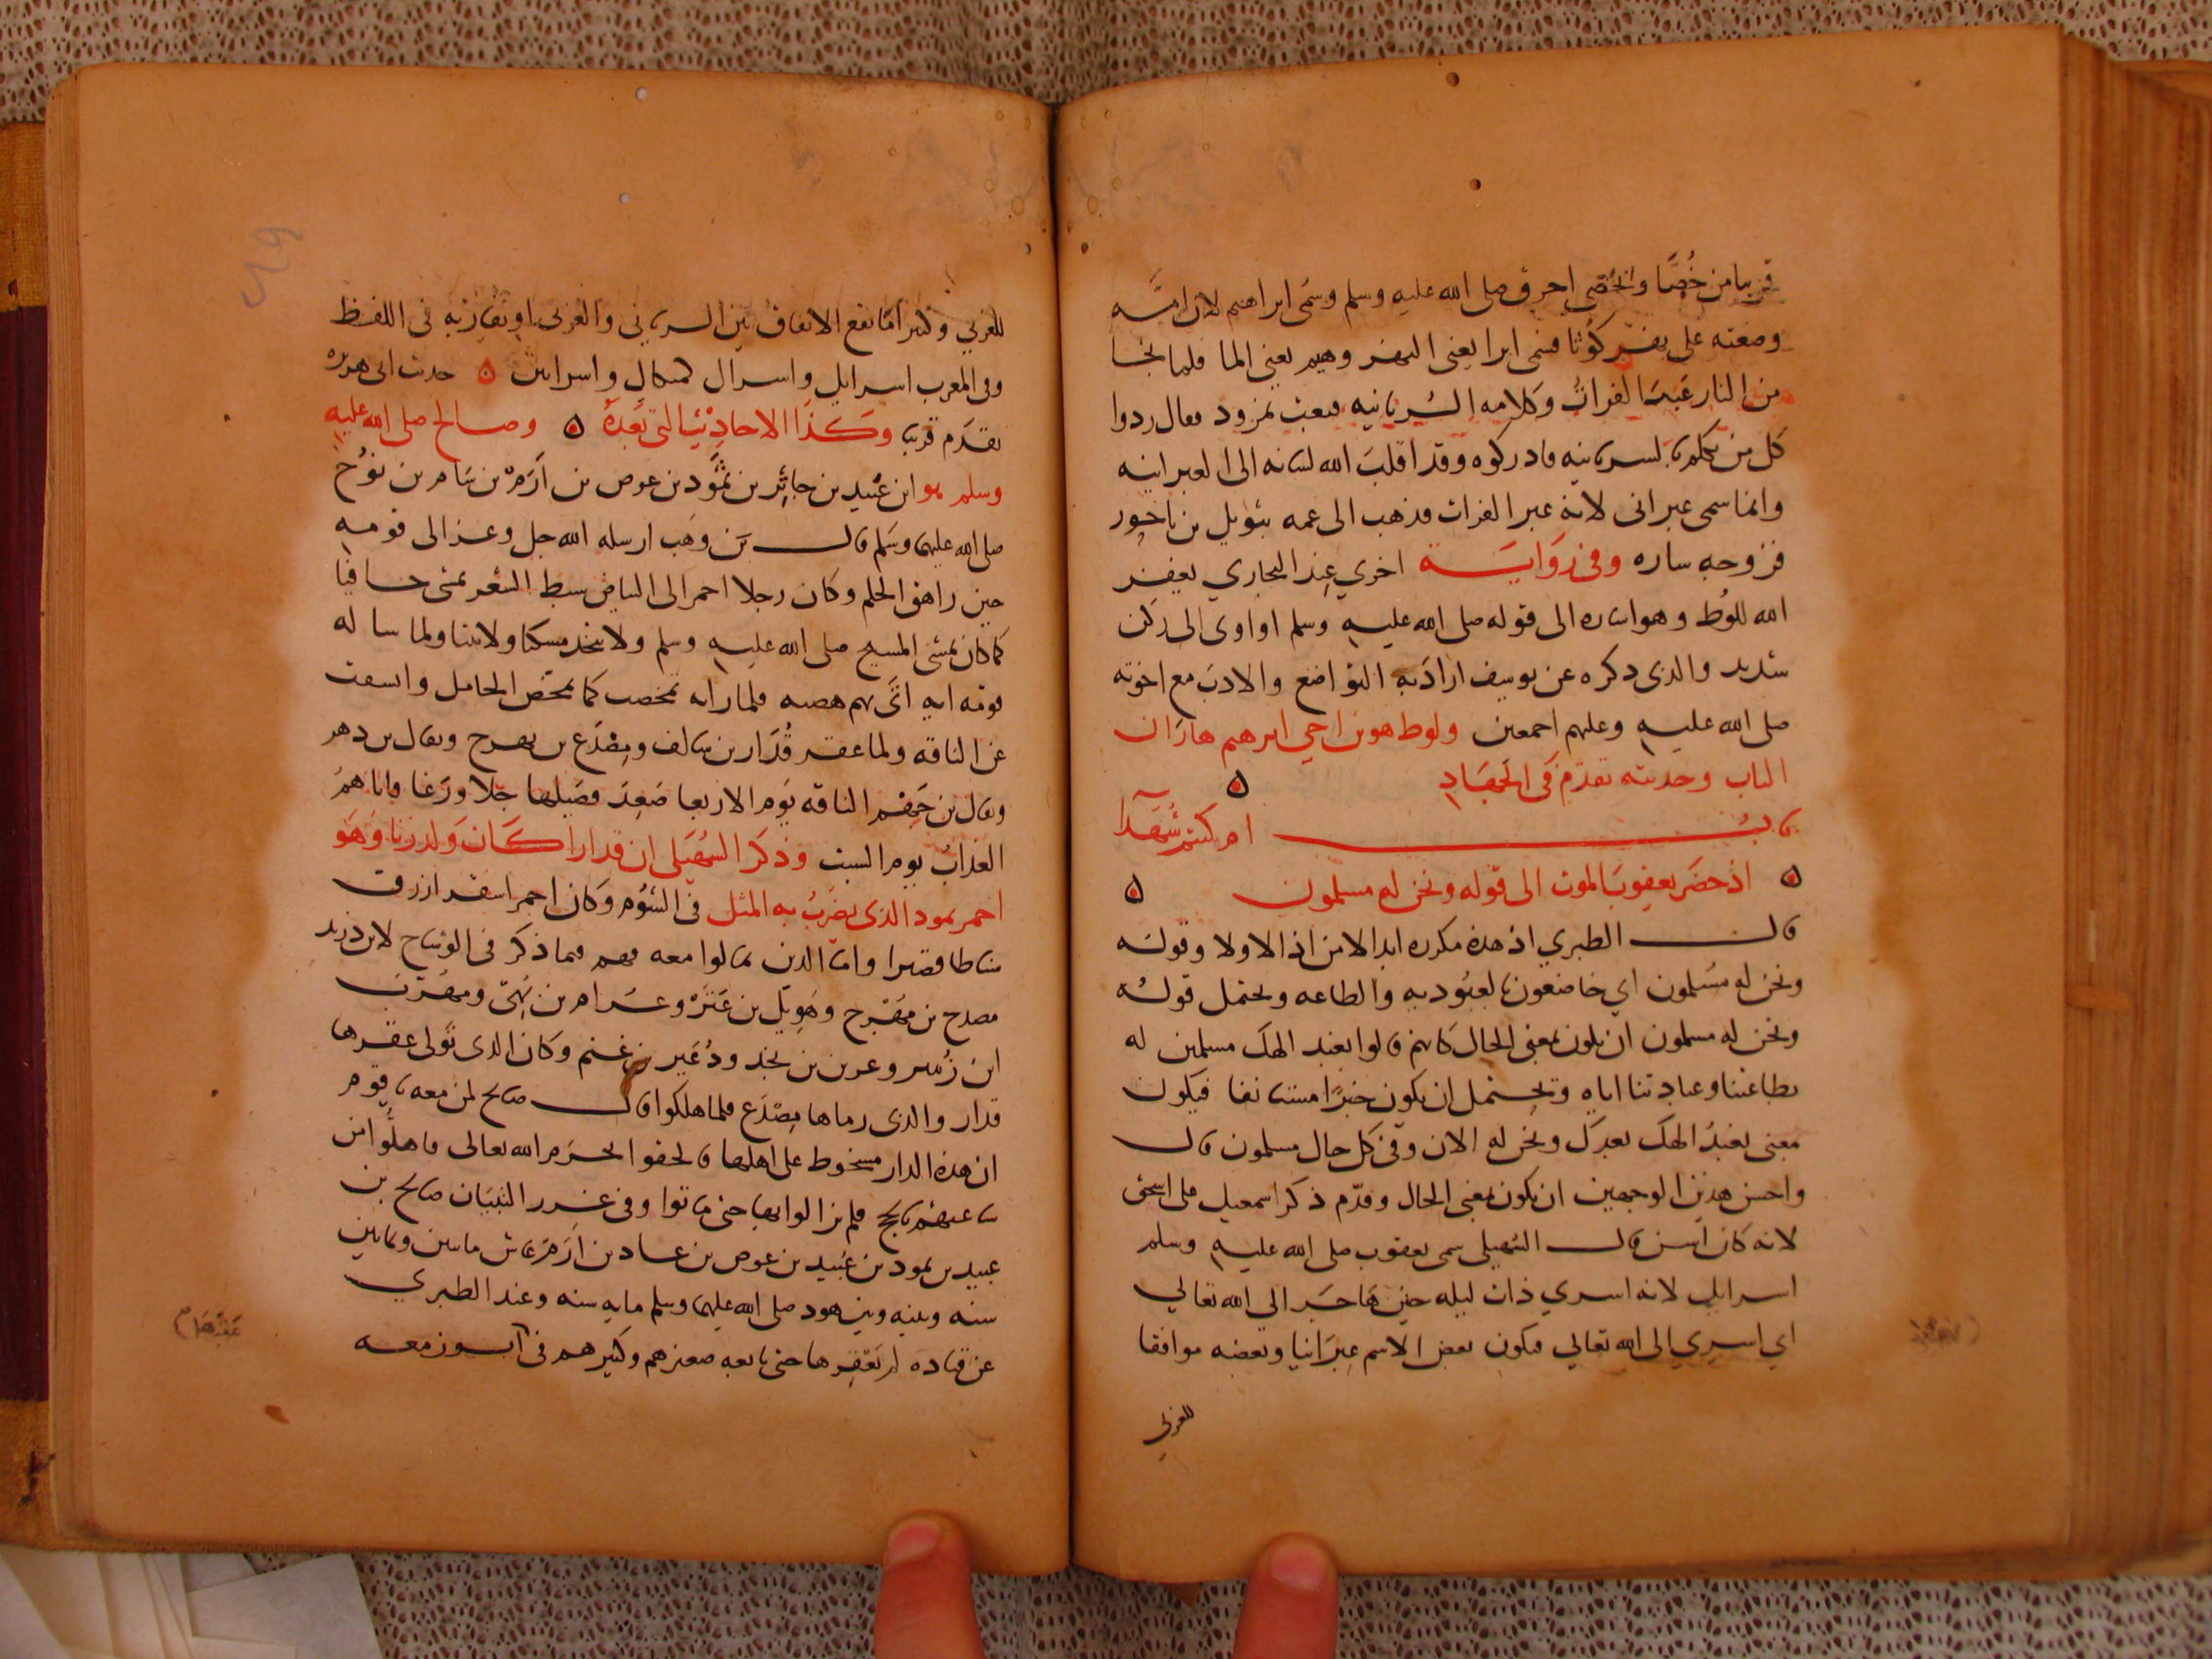 قريبا من خُصَّا والخُصَّى احرق صلى الله عليه وسلم وسمى ابراهيم لان امه
وضعته على نهر كوثا فسمى ابرا يعنى النهر وهيم يعنى الما فلما نجا
من النار عَبَر الفرات وكلامه السُريانيه فبعث نمرود فقال ردوا
كل من تكلم بالسريانيه فادركوه وقد اقلب الله لسانه الى العبرانيه
وانما سمى عبرانى لانه عبر الفرات فذهب الى عمه بثويل بن ناحور
فزوجه ساره وفى رواية اخري عند البخاري يغفر
الله للوُط وهو اشاره الى قوله صلى الله عليه وسلم او اوى الى ركن
شديد والذى دكره عن يوسف اراد به التواضع والادب مع اخوته
صلى الله عليه وعليهم اجمعين ولوط هو بن اخي ابرهيم هاران
الباب وحديثه تقدم فى الجهاد ۵
باب ام كنتم شُهَدآ
۵ اذ حضر يعقوبَ الموت الى قوله ونحن له مسلمون ۵
قال الطبري اذ هذه مكرره ابدالا من اذ الاولا وقوله
ونحن له مُسلمون اي خاضعون بالعبُوديه والطاعه ويحتمل قوله
ونحن له مسلمون ان يكون بمعنى الحال كانهم قالوا نعبد الهك مسلمين له
بطاعتنا وعبادتنا اياه ويحتمل ان يكون خبرًا مستانفا فيكون
معنى نعبدُ الهك بعدك ونحن له الان وفى كل حال مسلمون قال
واحسن هذين الوجهين ان يكون بمعنى الحال وقدّم ذكر اسمعيل على اسحق
لانه كان اسن قال السُهيلى سمى يعقوب صلى الله عليه وسلم
اسرايل لانه اسري ذات ليله حين هاجَر الى الله تعالي
اي اسري الى الله تعالي فيكون بعض الاسم عِبرَانيا وبعضه موافقا
للعربي
للعربي وكثيرا مّا يقع الاتفاق بين السريانى والعربى او يُقارَبه فى اللفظ
وفى المعرب اسرايل واسرال كميكال واسرايين ۵ حديث ابى هريره
تقدَم قريبا وَكَذَا الاحاديثَ التى بَعدَهُ ۵ وصالح صلى الله عليه
وسلم هو ابن عُبيد بن جاثِر بن ثمُود بن عوص بن اَرَم بن سَام بن نوُح
صلى الله عليهما وسَلم قال بن وَهب ارسله الله جل وعز الى قومه
حين راهق الحلم وكان رجلا احمر الى البياض سبط الشعر يمشى حافيا
كما كان يمشى المسيح صلى الله عليه وسلم ولا يتخذ مسكنا ولا بيتا ولما ساله
قومه ايه اتَى بهم هضبه فلما راته تمخضت كما تمخض الحامل وانشقت
عن الناقه ولما عقر قُدَار بن سالف ومِصْدَع بن مهرج ويقال بن دهر
ويقال بن جَهم الناقه يَوم الاربعا صَعِدَ فصَيلها جبلا ورَغا فاتاهمُ
العذابُ يوم السبت وذكر السُهَيلى ان قدارا كان وَلد زنا وَهوَ
احمر ثمود الذى يضربُ به المثل فى الشؤم وكان احمر اشقر ازرق
سناطا قصيرا واما الذين تمالوا معه فهم فيما ذكر فى الوشاح لابن دريد
مصدح بن مَهْرج وهَوِيَل بن عَنَزَه
قدار والذى رماها مِصْدَع فلما هلكوا قال صالح لمن معه يا قوم
ان هذه الدار مسخوط على اهلها فالحقو الحرَم الله تعالى فاهلُّوا من
ساعتهم بالحج فلم يزالوا بها حتى ماتوا وفى غرر التبيَان صالح بن
عبيد بن ثمود بن عَبيد بن عوص بن عاد بن اَرَم عَاش مايتين وثمانين
سنه وبينه وبين هود صلى الله عليهما وسلم مايه سنه وعند الطبري
عن قتاده لم يَعْقِرها حتى تابعه صغيرهم وكبيرهم فى